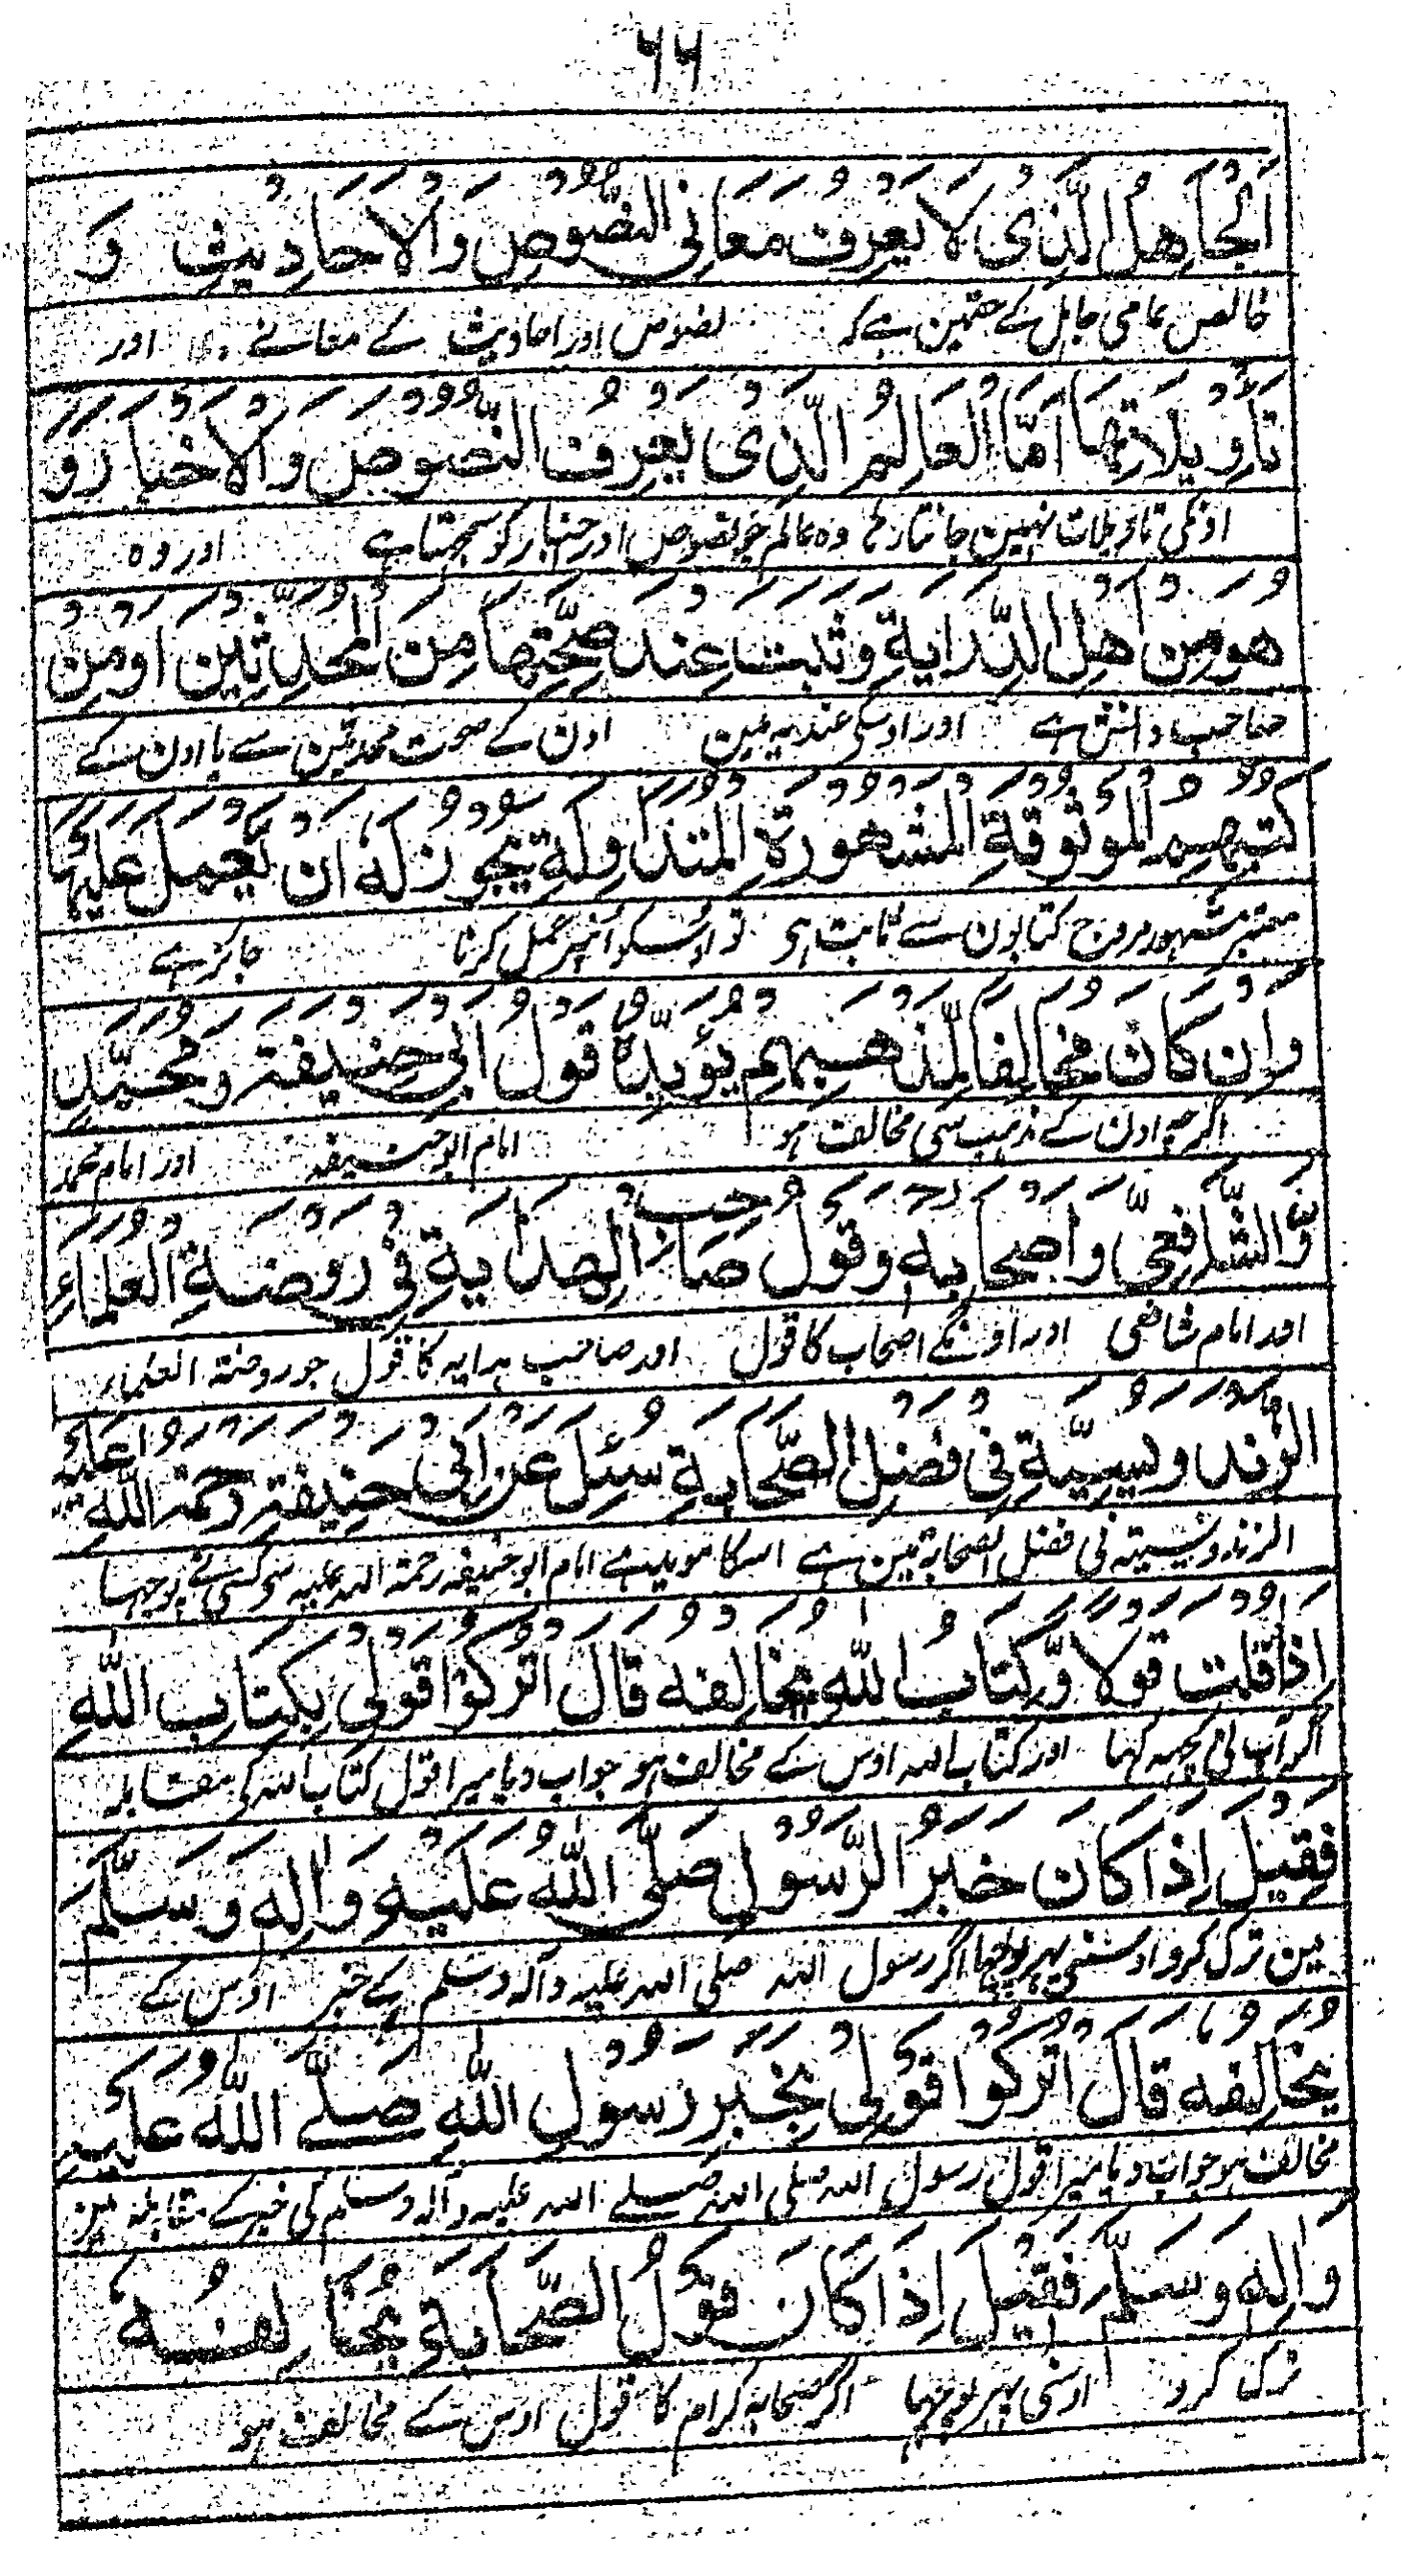 ۶۶
اَلْجَاهِلُ الَّذِیْ لَا یَعْرِفُ مَعَانِی النُّصُوْصِ وَالْاَحَادِیْثِ وَ
خالص عامی جاہل کے حقمین ہے کہ نصوص اور احادیث کے معانے اور
تَاْوِیْلَاتِهَا اَمَّا الْعَالِمُ الَّذِیْ یَعْرِفُ النُّصُوْصَ وَالْاَخْبَارَ وَ
اونکی تاویلات نہین جانتا رہا وہ عالم جو نصوص اور اخبار کو سمجہتا ہے اور وہ
هُوَ مِنْ اَهْلِ الدِّرَایَةِ وَ ثَبَتَ عِنْدَهٗ صِحَّتُهَا مِنَ الْمُحَدِّثِیْنَ اَوْ مِنْ
صاحب دانش ہے اور اوسکی عندیہ مین اون کے صحت محدثین سے یا اون کے
کُتُبِهِمُ الْمَوْثُوْقَةِ الْمَشْهُوْرَةِ الْمُتَدَاوِلَةِ یَجُوْزُ لَهٗ اَنْ یَّعْمَلَ عَلَیْهَا
معتبر مشہور مروج کتابون سے ثابت ہی تو اوسکو انپر عمل کرنا جائز ہے
وَاِنْ کَانَ مُخَالِفًا لِمَذْهَبِهِمْ یُؤَیِّدُهٗ قَوْلُ اَبِیْ حَنِیْفَةَ وَ مُحَمَّدٍ
اگرچہ اون کے مذہب سی مخالف ہو امام ابو حنیفہ اور امام محمد
وَّالشَّافِعِیِّ وَ اَصْحَابِهٖ وَ قَوْلُ صَاحِبِ الْهِدَایَةِ فِیْ رَوْضَةِ الْعُلَمَاءِ
اور امام شافعی اور اونکے اصحاب کا قول اور صاحب ہدایہ کا قول جو روضۃ العلماء
الزَّنْدَوِیْسِیَّةِ فِیْ فَضْلِ الصَّحَابَةِ سُئِلَ عَنْ اَبِیْ حَنِیْفَةَ رَحْمَةُ اللّٰهِ عَلَیْهِ
الزندویسیہ فی فضل الصحابۃ مین ہے اسکا موید ہے امام ابو حنیفہ رحمۃ اللہ علیہ سی کسی نے پوچہا
اِذَا قُلْتَ قَوْلًا وَّکِتَابُ اللّٰهِ یُخَالِفُهٗ قَالَ اُتْرُکُوْا قَوْلِیْ بِکِتَابِ اللّٰهِ
اگر آپ نی کچہہ کہا اور کتاب اللہ اوس کے مخالف ہو جواب دیا میرا قول کتاب اللہ کی مقابلہ
فَقِیْلَ اِذَا کَانَ خَبَرُ الرَّسُوْلِ صَلَّی اللّٰهُ عَلَیْهِ وَاٰلِهٖ وَسَلَّمَ
مین ترک کرو اوسنی پہر پوچہا اگر رسول اللہ صلی اللہ علیہ وآلہ وسلم کے خبر اوس کے
یُخَالِفُهٗ قَالَ اُتْرُکُوْا قَوْلِیْ بِخَبَرِ رَسُوْلِ اللّٰهِ صَلَّے اللّٰهُ عَلَیْهِ
مخالف ہو جواب دیا میرا قول رسول اللہ صلی اللہ صلے اللہ علیہ وآلہ وسلم کی خبر کے مقابلہ مین
وَاٰلِهٖ وَسَلَّمَ فَقِیْلَ اِذَا کَانَ قَوْلُ الصَّحَابَةِ یُخَالِفُهٗ
ترک کرو اوسنی پہر پوچہا اگر صحابہ کرام کا قول اوس کے مخالف ہو